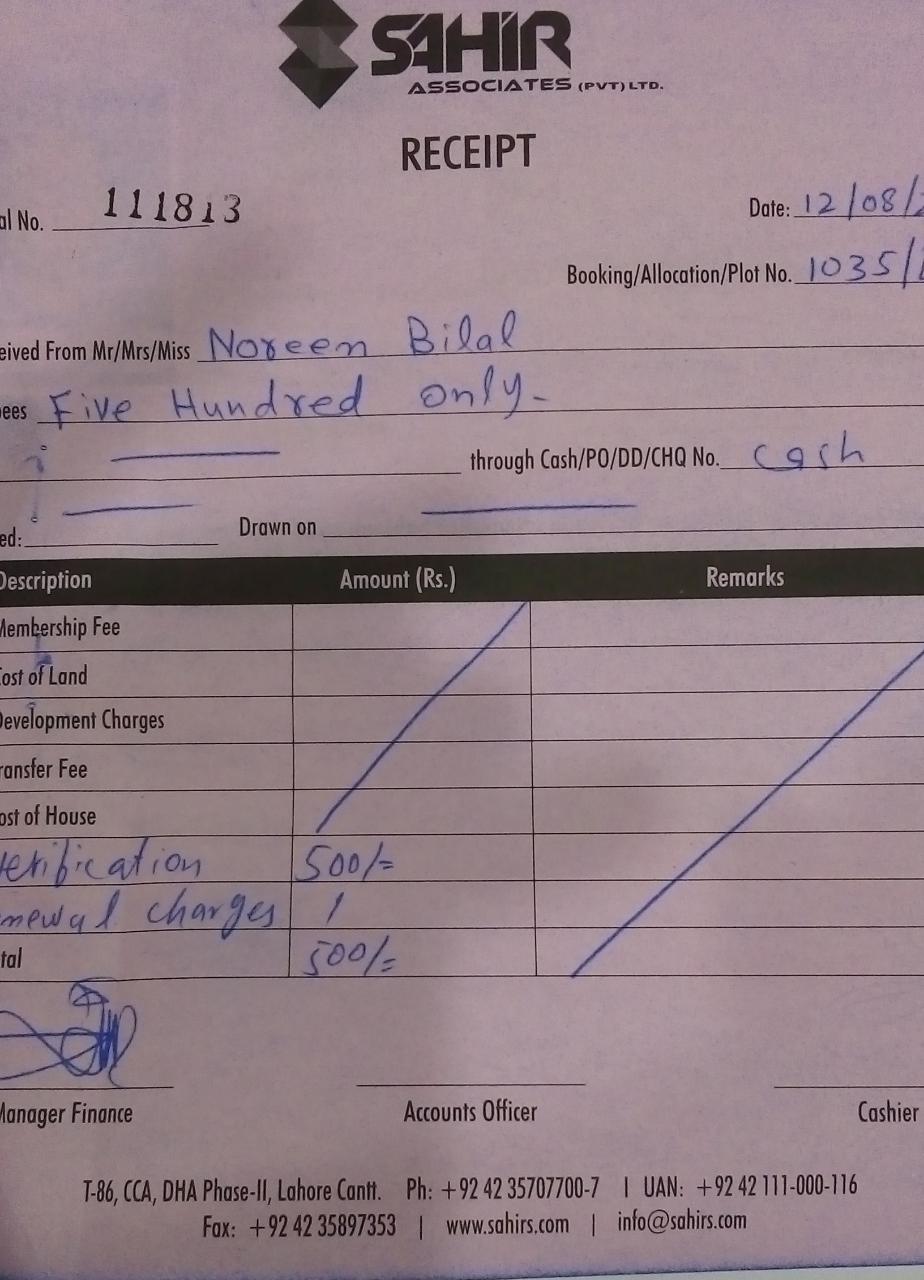 SAHIR
ASSOCIATES (PVT) LTD.
RECEIPT
al No. 111813
Date: 12/08/
Booking/Allocation/Plot No. 1035/
eived From Mr/Mrs/Miss Noreen Bilal
ees Five Hundred only-
through Cash/PO/DD/CHQ No. Cash
ed: Drawn on
Description Amount (Rs.) Remarks
Membership Fee
Cost of Land
Development Charges
ransfer Fee
ost of House
verification 500/=
newal charges /
tal 500/=
Manager Finance Accounts Officer Cashier
T-86, CCA, DHA Phase-II, Lahore Cantt. Ph: +92 42 35707700-7 | UAN: +92 42 111-000-116
Fax: +92 42 35897353 | www.sahirs.com | info@sahirs.com